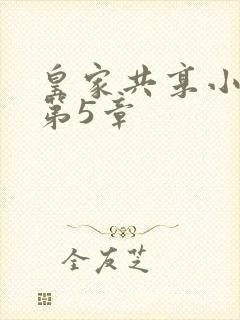 皇家共享小
第5章
全友芝